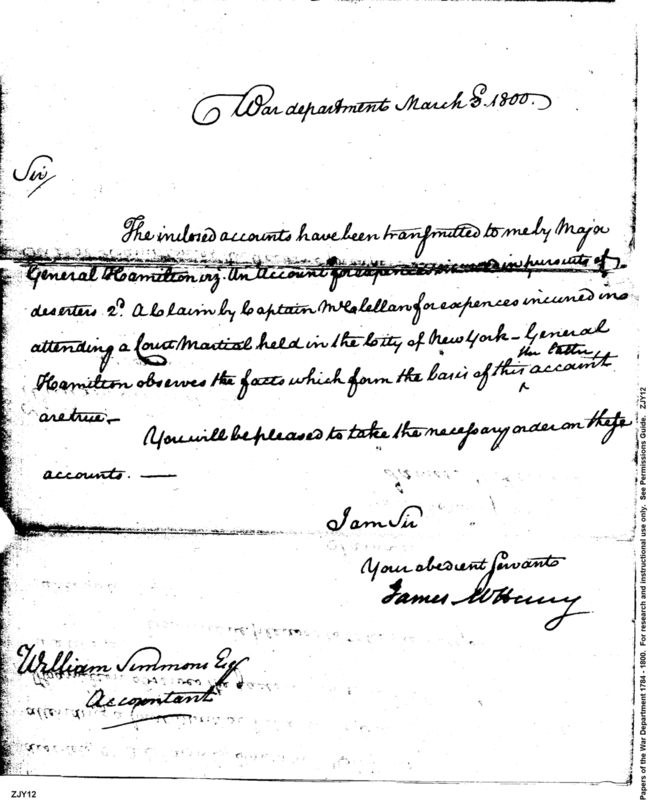 War department March 8. 1800.
Sir
The inclosed accounts have been transmitted to me by Major
General Hamilton viz. An Account for expences incured in pursuits of
deserters. 2d. A Claim by Captain McClellan for expences incurred in
attending a Court Martial held in the City of New York – General
Hamilton observes the facts which form the basis of this ^ the latter account
are true. –
You will be pleased to take the necessary order on these
accounts. —
I am Sir
Your obedient Servant
James McHenry
William Simmons Esq
Accountant
ZJY12
Papers of the War Department 1784 - 1800. For research and instructional use only. See Permissions Guide. ZJY12